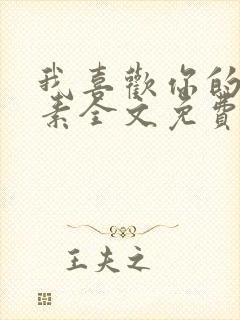 我喜歡你的
素全文免費
王夫之